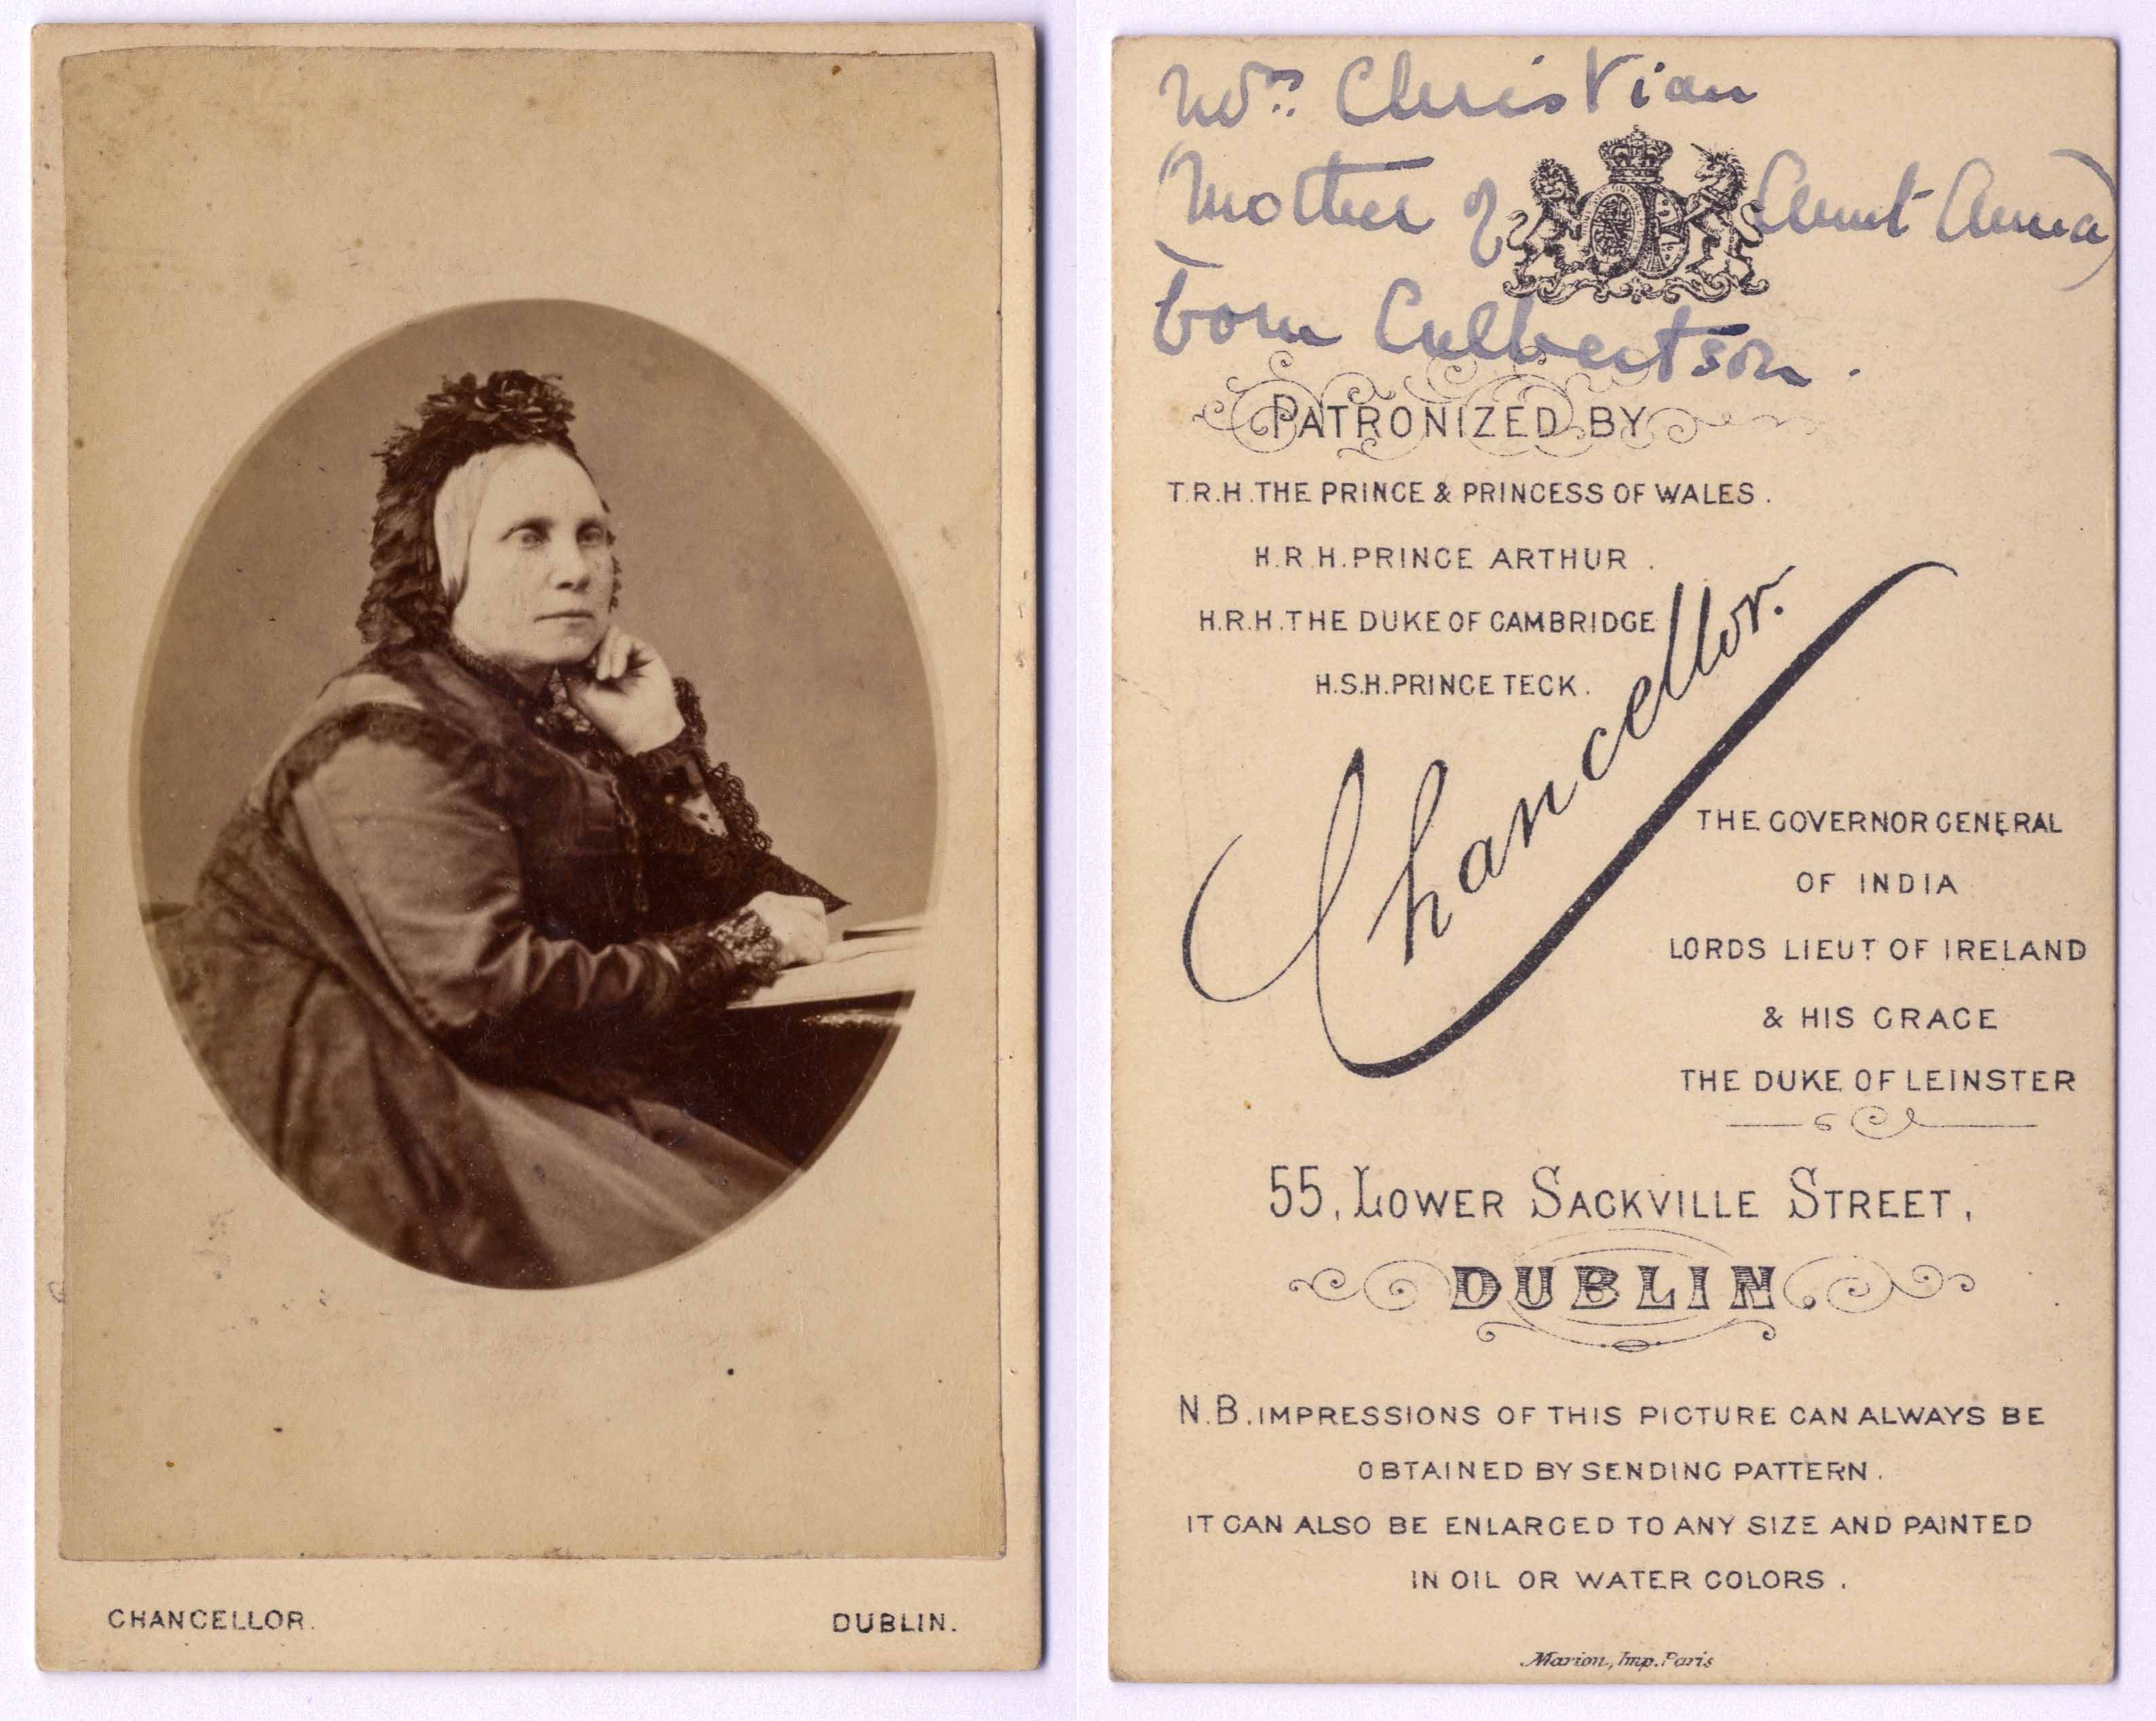 CHANCELLOR.
DUBLIN.
Mrs. Christian
(Mother of Aunt Anna)
born Culbertson.
PATRONIZED BY
T.R.H. THE PRINCE & PRINCESS OF WALES.
H.R.H. PRINCE ARTHUR.
H.R.H. THE DUKE OF CAMBRIDGE
H.S.H. PRINCE TECK.
Chancellor.
THE GOVERNOR GENERAL
OF INDIA
LORDS LIEUT OF IRELAND
& HIS GRACE
THE DUKE OF LEINSTER
55, LOWER SACKVILLE STREET,
DUBLIN.
N.B. IMPRESSIONS OF THIS PICTURE CAN ALWAYS BE
OBTAINED BY SENDING PATTERN.
IT CAN ALSO BE ENLARGED TO ANY SIZE AND PAINTED
IN OIL OR WATER COLORS.
Marion, Imp. Paris